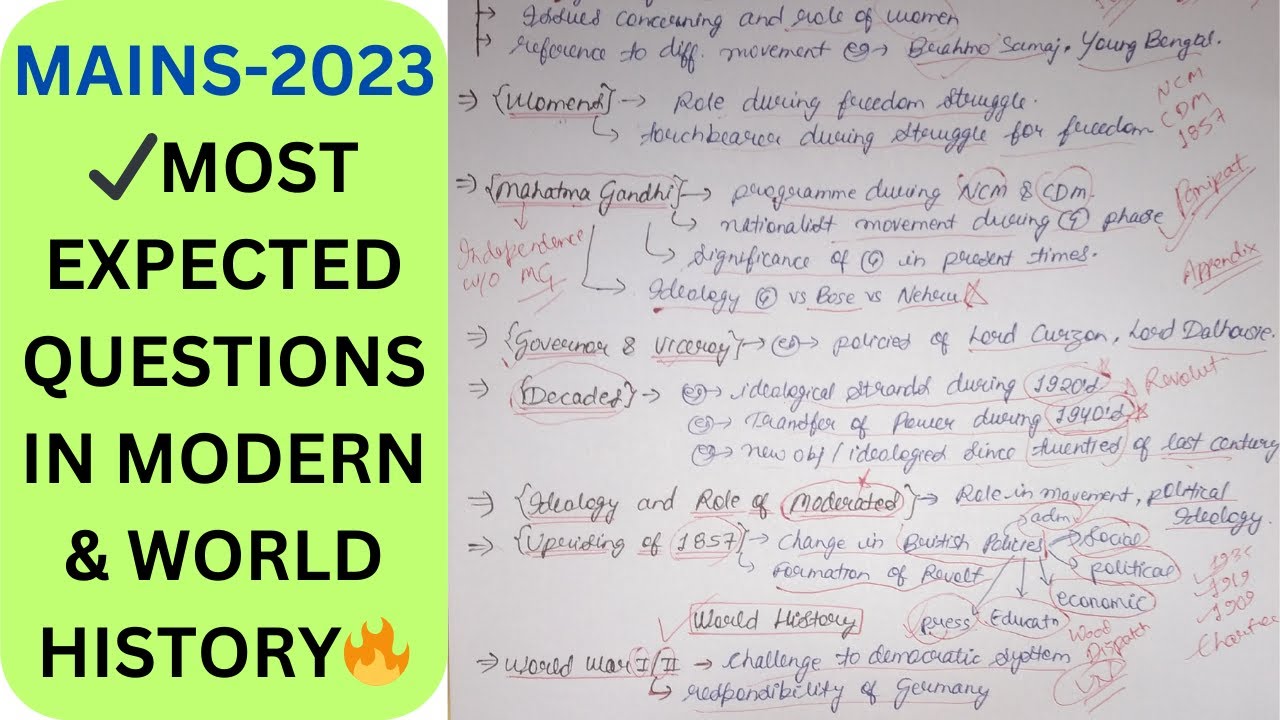 MAINS-2023
✔MOST
EXPECTED
QUESTIONS
IN MODERN
& WORLD
HISTORY🔥
→ Issues concerning and role of women
→ reference to diff. movement eg → Brahmo Samaj, Young Bengal.
⇒ {Womens} → Role during freedom struggle.
NCM
CDM
1857
↳ touchbearer during struggle for freedom
⇒ {Mahatma Gandhi} → programme during NCM & CDM.
Panipat.
↳ nationalist movement during G phase
Independence
w/o MG
↳ significance of G in present times.
Appendix
↳ Ideology G vs Bose vs Nehru
⇒ {Governor & Viceroy} → eg → policies of Lord Curzon, Lord Dalhousie.
⇒ {Decades} → eg → ideological strands during 1920's
Revolut
eg → Transfer of Power during 1940's
eg → new obj/ideologies since twenties of last century
⇒ {Ideology and Role of Moderates} → Role in movement, political Ideology.
⇒ {Uprising of 1857} → Change in British Policies
adm.
social
political
economic
Educatn
press
↳ Formation of Revolt
1935
1919
1909
Charter
Wood
Dispatch
World History
⇒ World War I/II → Challenge to democratic system
↳ responsibility of Germany